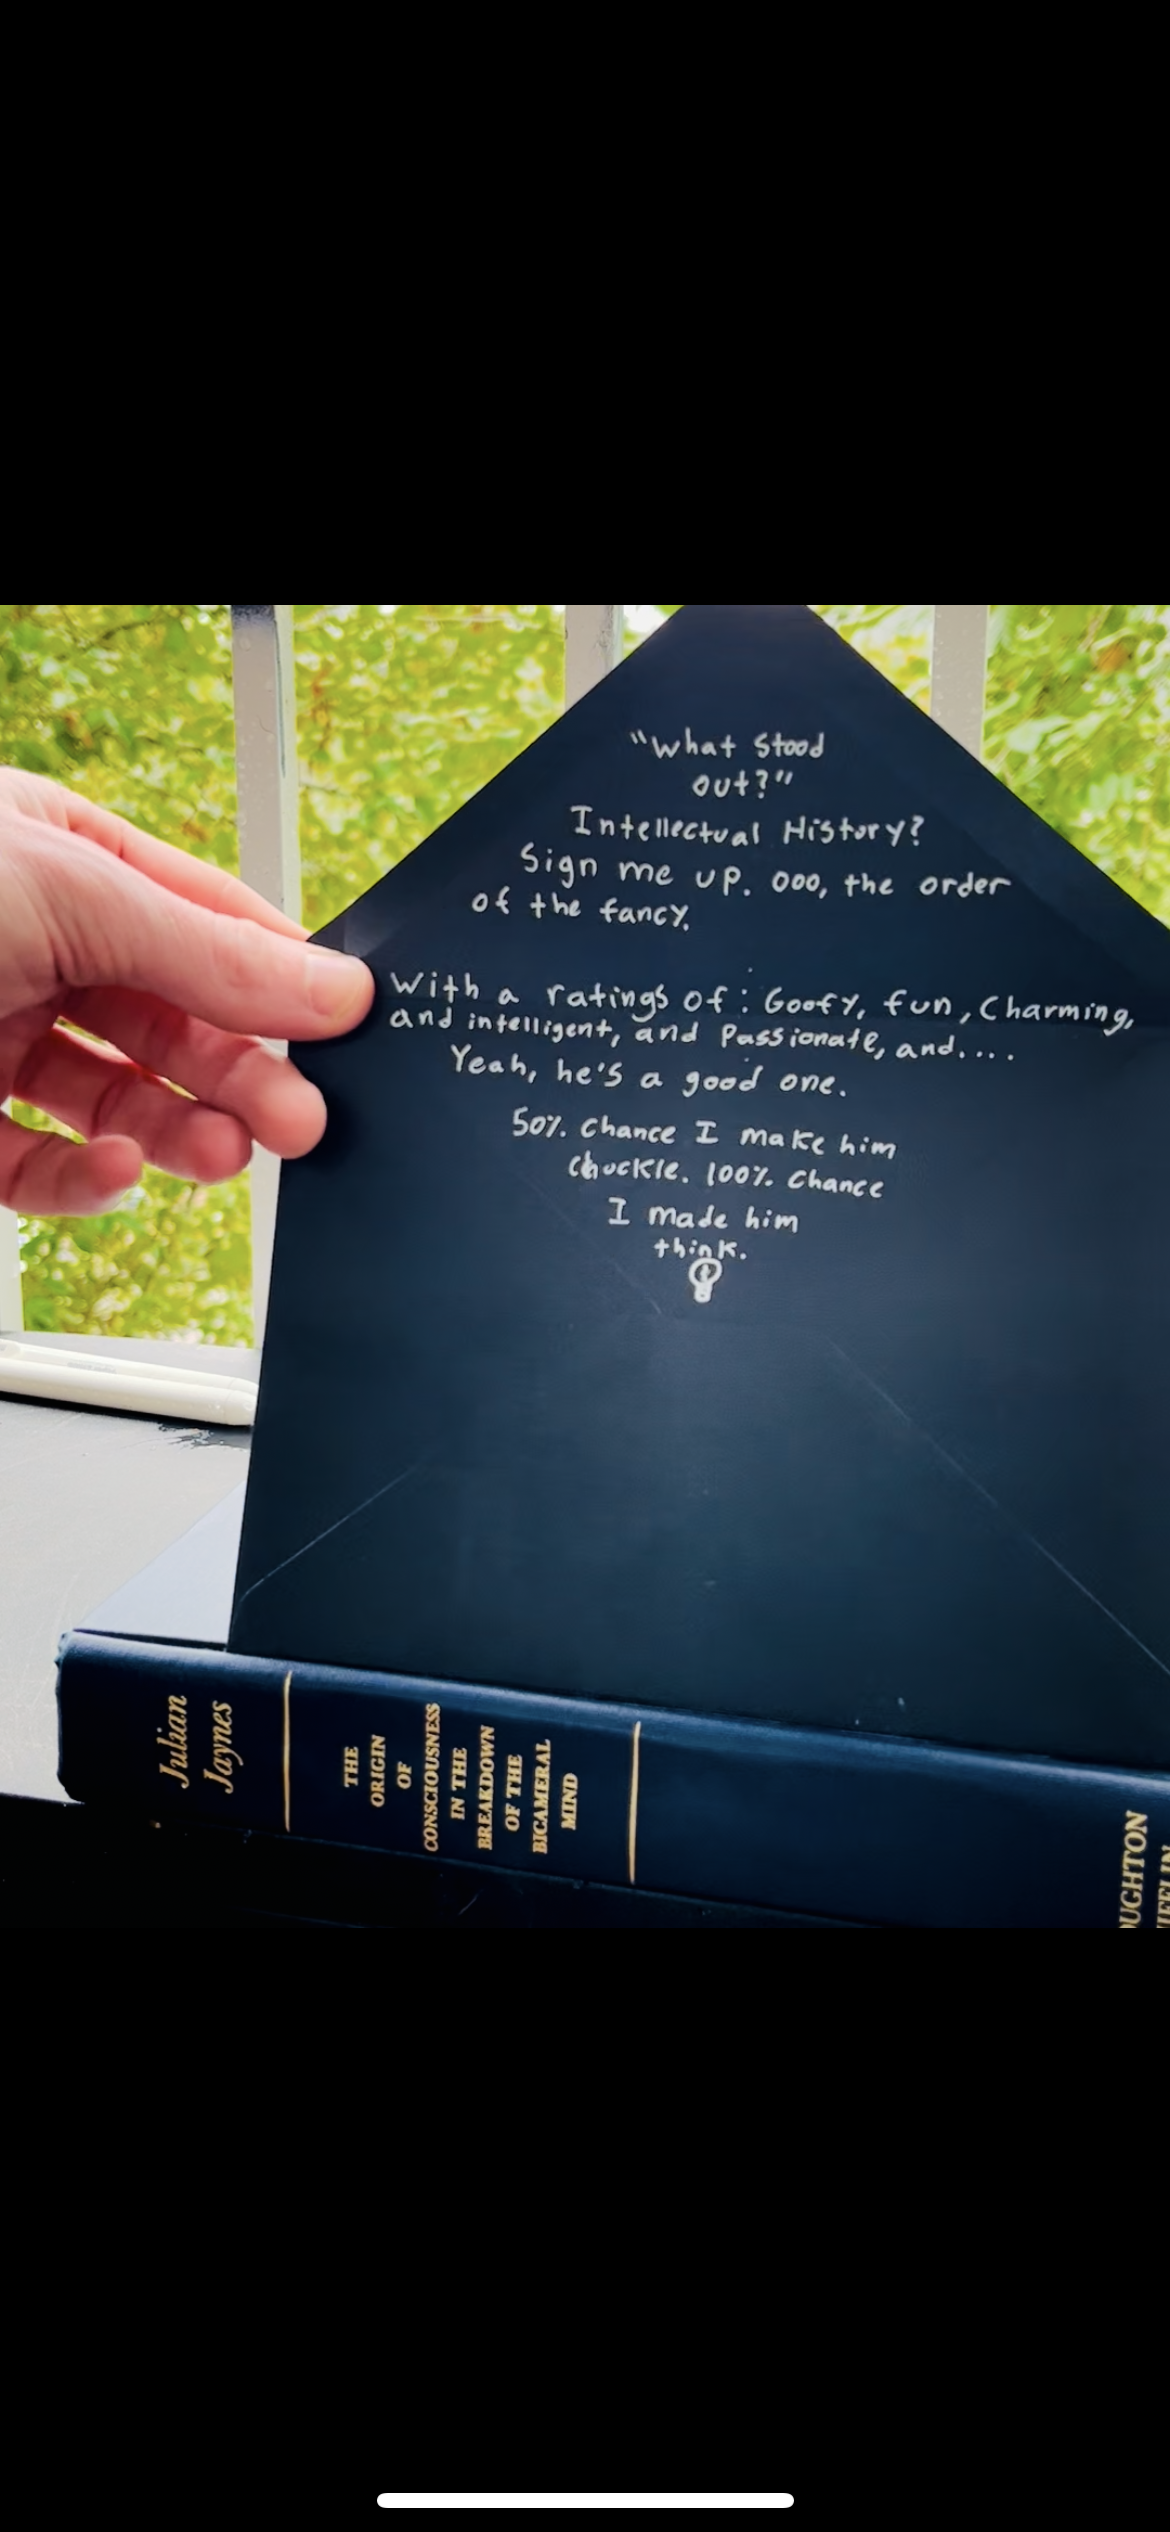 "What Stood
out?"
Intellectual History?
Sign me up. ooo, the order
of the fancy.
With a ratings of: Goofy, fun, Charming,
and intelligent, and Passionate, and....
Yeah, he's a good one.
50% Chance I make him
chuckle. 100% Chance
I made him
think.
Julian
Jaynes
THE
ORIGIN
OF
CONSCIOUSNESS
IN THE
BREAKDOWN
OF THE
BICAMERAL
MIND
OUGHTON